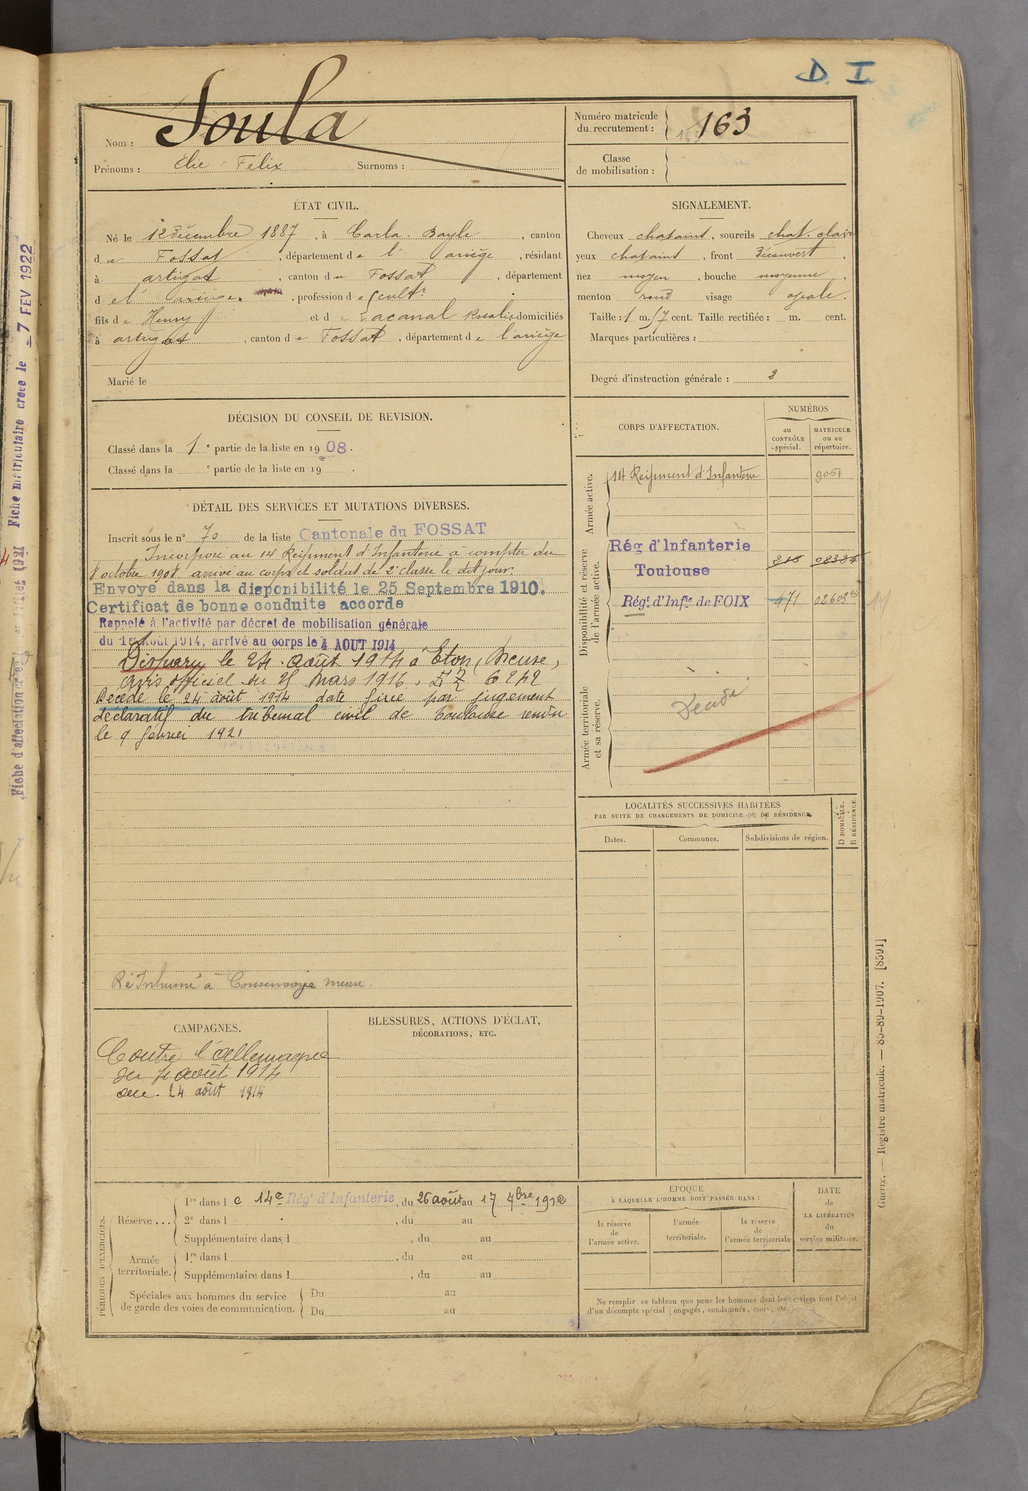 D. I.
Nom : Soula
Prénoms : Elie Felix Surnoms :
Numéro matricule du recrutement : 163
Classe de mobilisation :
ÉTAT CIVIL.
Né le 12 décembre 1887, à Carla-Bayle, canton
du Fossat, département de l'ariège, résidant
à artigat, canton du Fossat, département
de l'ariège, profession de cultr
fils de Henry et de Lacanal Rosalie domiciliés
à artigat, canton de Fossat, département de l'ariège
Marié le
SIGNALEMENT.
Cheveux chatains, sourcils chat. clairs
yeux chatains, front découvert,
nez moyen, bouche moyenne,
menton rond visage ovale.
Taille : 1 m. 57 cent. Taille rectifiée : m. cent.
Marques particulières :
Degré d'instruction générale : 3
DÉCISION DU CONSEIL DE REVISION.
Classé dans la 1e partie de la liste en 1908.
Classé dans la e partie de la liste en 19 .
DÉTAIL DES SERVICES ET MUTATIONS DIVERSES.
Inscrit sous le n° 70 de la liste Cantonale du FOSSAT
Incorporé au 14 Régiment d'Infanterie à compter du
8 octobre 1908 arrivé au corps et soldat de 2e classe le dit jour.
Envoyé dans la disponibilité le 25 Septembre 1910.
Certificat de bonne conduite accordé
Rappelé à l'activité par décret de mobilisation générale
du 1er Août 1914, arrivé au corps le 4 AOUT 1914
Disparu le 24 août 1914 à Eton, Meuse,
avis officiel du 25 mars 1916,
Décédé le 24 août 1914 date fixée par jugement
déclaratif du tribunal civil de Toulouse rendu
le 9 février 1921
Ré Inhumé à Consenvoye meuse.
CORPS D'AFFECTATION.
NUMÉROS
au CONTRÔLE spécial.
MATRICULE ou au répertoire.
Armée active.
14 Régiment d'Infanterie 9051
Disponibilité et réserve de l'armée active.
Rég d'Infanterie
Toulouse
Rég. d'Infie de FOIX
Armée territoriale et sa réserve.
Décédé
LOCALITÉS SUCCESSIVES HABITÉES
PAR SUITE DE CHANGEMENTS DE DOMICILE OU DE RÉSIDENCE.
Dates. Communes. Subdivisions de région.
D DOMICILE.
R RÉSIDENCE.
CAMPAGNES.
Contre l'allemagne
du 4 août 1914
au 24 août 1914
BLESSURES, ACTIONS D'ÉCLAT,
DÉCORATIONS, ETC.
PÉRIODES D'EXERCICES.
Réserve...
1re dans le 14e Rég. d'Infanterie, du 26 août au 17 7bre
2e dans l , du au
Supplémentaire dans l , du au
Armée territoriale.
1re dans l , du au
Supplémentaire dans l , du au
Spéciales aux hommes du service
de garde des voies de communication.
Du au
Du au
ÉPOQUE
À LAQUELLE L'HOMME DOIT PASSER DANS :
la réserve de l'armée active.
l'armée territoriale.
la réserve de l'armée territoriale
DATE de LA LIBÉRATION du service militaire.
Ne remplir ce tableau que pour les hommes dont les services font l'objet
d'un décompte spécial : engagés, condamnés, omis, etc.
Registre matricule. — 85-89-1907. [8591]
Fiche matriculaire créée le – 7 FEV 1922